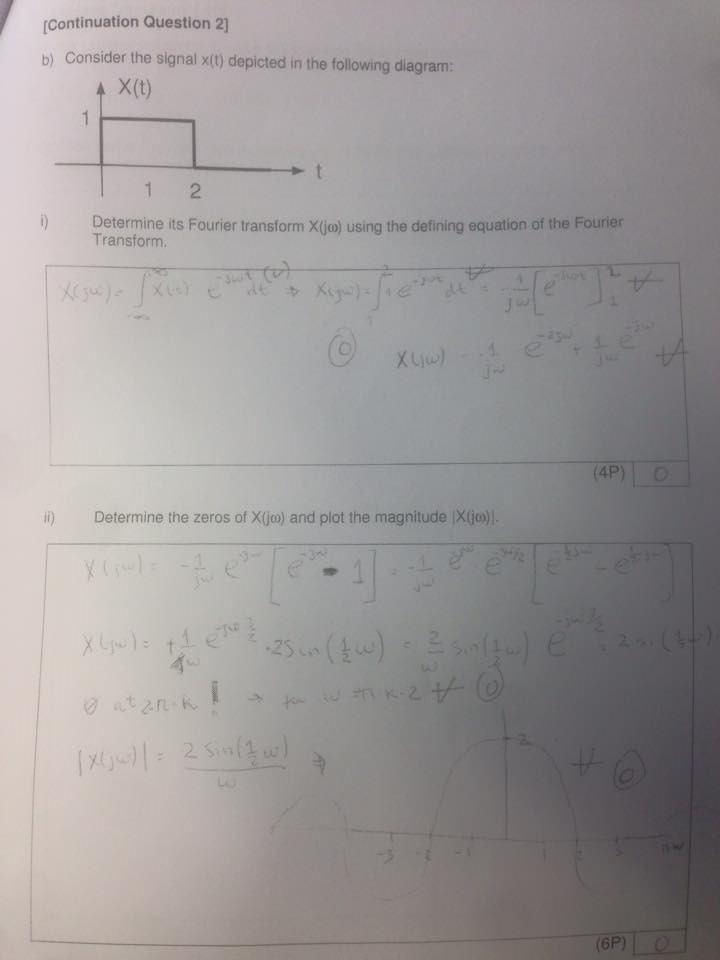 [Continuation Question 2]
b) Consider the signal x(t) depicted in the following diagram:
X(t)
1
t
1 2
i) Determine its Fourier transform X(jω) using the defining equation of the Fourier
Transform.
X(jω) = ∫ x(t) e^-jωt dt ⇒ X(jω) = ∫ 1 e^-jωt dt = -1/jω [e^-jωt]
0 X(jω) -1/jω e^-2jω + 1/jω e^-jω
(4P) 0
ii) Determine the zeros of X(jω) and plot the magnitude |X(jω)|.
X(jω) = -1/jω e^-jω [e^-jω - 1] = -1/jω e^-jω e^-jω/2 [e^-½jω - e^½jω]
X(jω) = +1/ω e^-jω 3/2 · 2 sin(½ω) = 2/ω sin(½ω) e^-jω 3/2
0 at 2π·k ! → 0
|X(jω)| = 2 sin(½ω)/ω ⇒
2
0
-3 -2 -1 1 2 3
(6P) 0